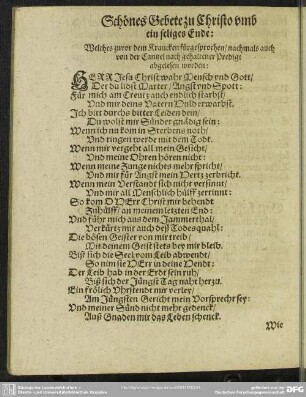 Schönes Gebete zu Christo vmb
ein seliges Ende:
Welches zuvor dem Krancken fürgesprochen / nachmals auch
von der Cantzel nach gehaltener Predigt
abgelesen worden:
HERR Jesu Christ wahr Mensch vnd Gott /
Der du lidst Marter / Angst vnd Spott:
Für mich am Creutz auch endlich starbst /
Vnd mir deins Vatern Huld erwarbst.
Ich bitt durchs bitter Leiden dein /
Du wolst mir Sünder gnädig sein:
Wenn ich nu kom in Sterbens noth /
Vnd ringen werde mit dem Todt.
Wenn mir vergeht all mein Gesicht /
Vnd meine Ohren hören nicht:
Wenn meine Zunge nichts mehr spricht /
Vnd mir für Angst mein Hertz zerbricht.
Wenn mein Verstand sich nicht versinnt /
Vnd mir all Menschlich hülff zerrinnt:
So kom O HErr Christ mir behendt
Zu hülff / an meinem letzten End:
Vnd führ mich aus dem Jammerthal /
Verkürtz mir auch deß Todesquahl:
Die bösen Geister von mir treib /
Mit deinem Geist stets bey mir bleib.
Biß sich die Seel vom Leib abwendt /
So nim sie HErr in deine Hendt:
Der Leib hab in der Erdt sein ruh /
Biß sich der Jüngst Tag naht herzu.
Ein frölich Vhrstendt mir verley /
Am Jüngsten Gericht mein Vorsprech sey:
Vnd meiner Sünd nicht mehr gedenck /
Auß Gnaden mir das Leben schenck.
Wie